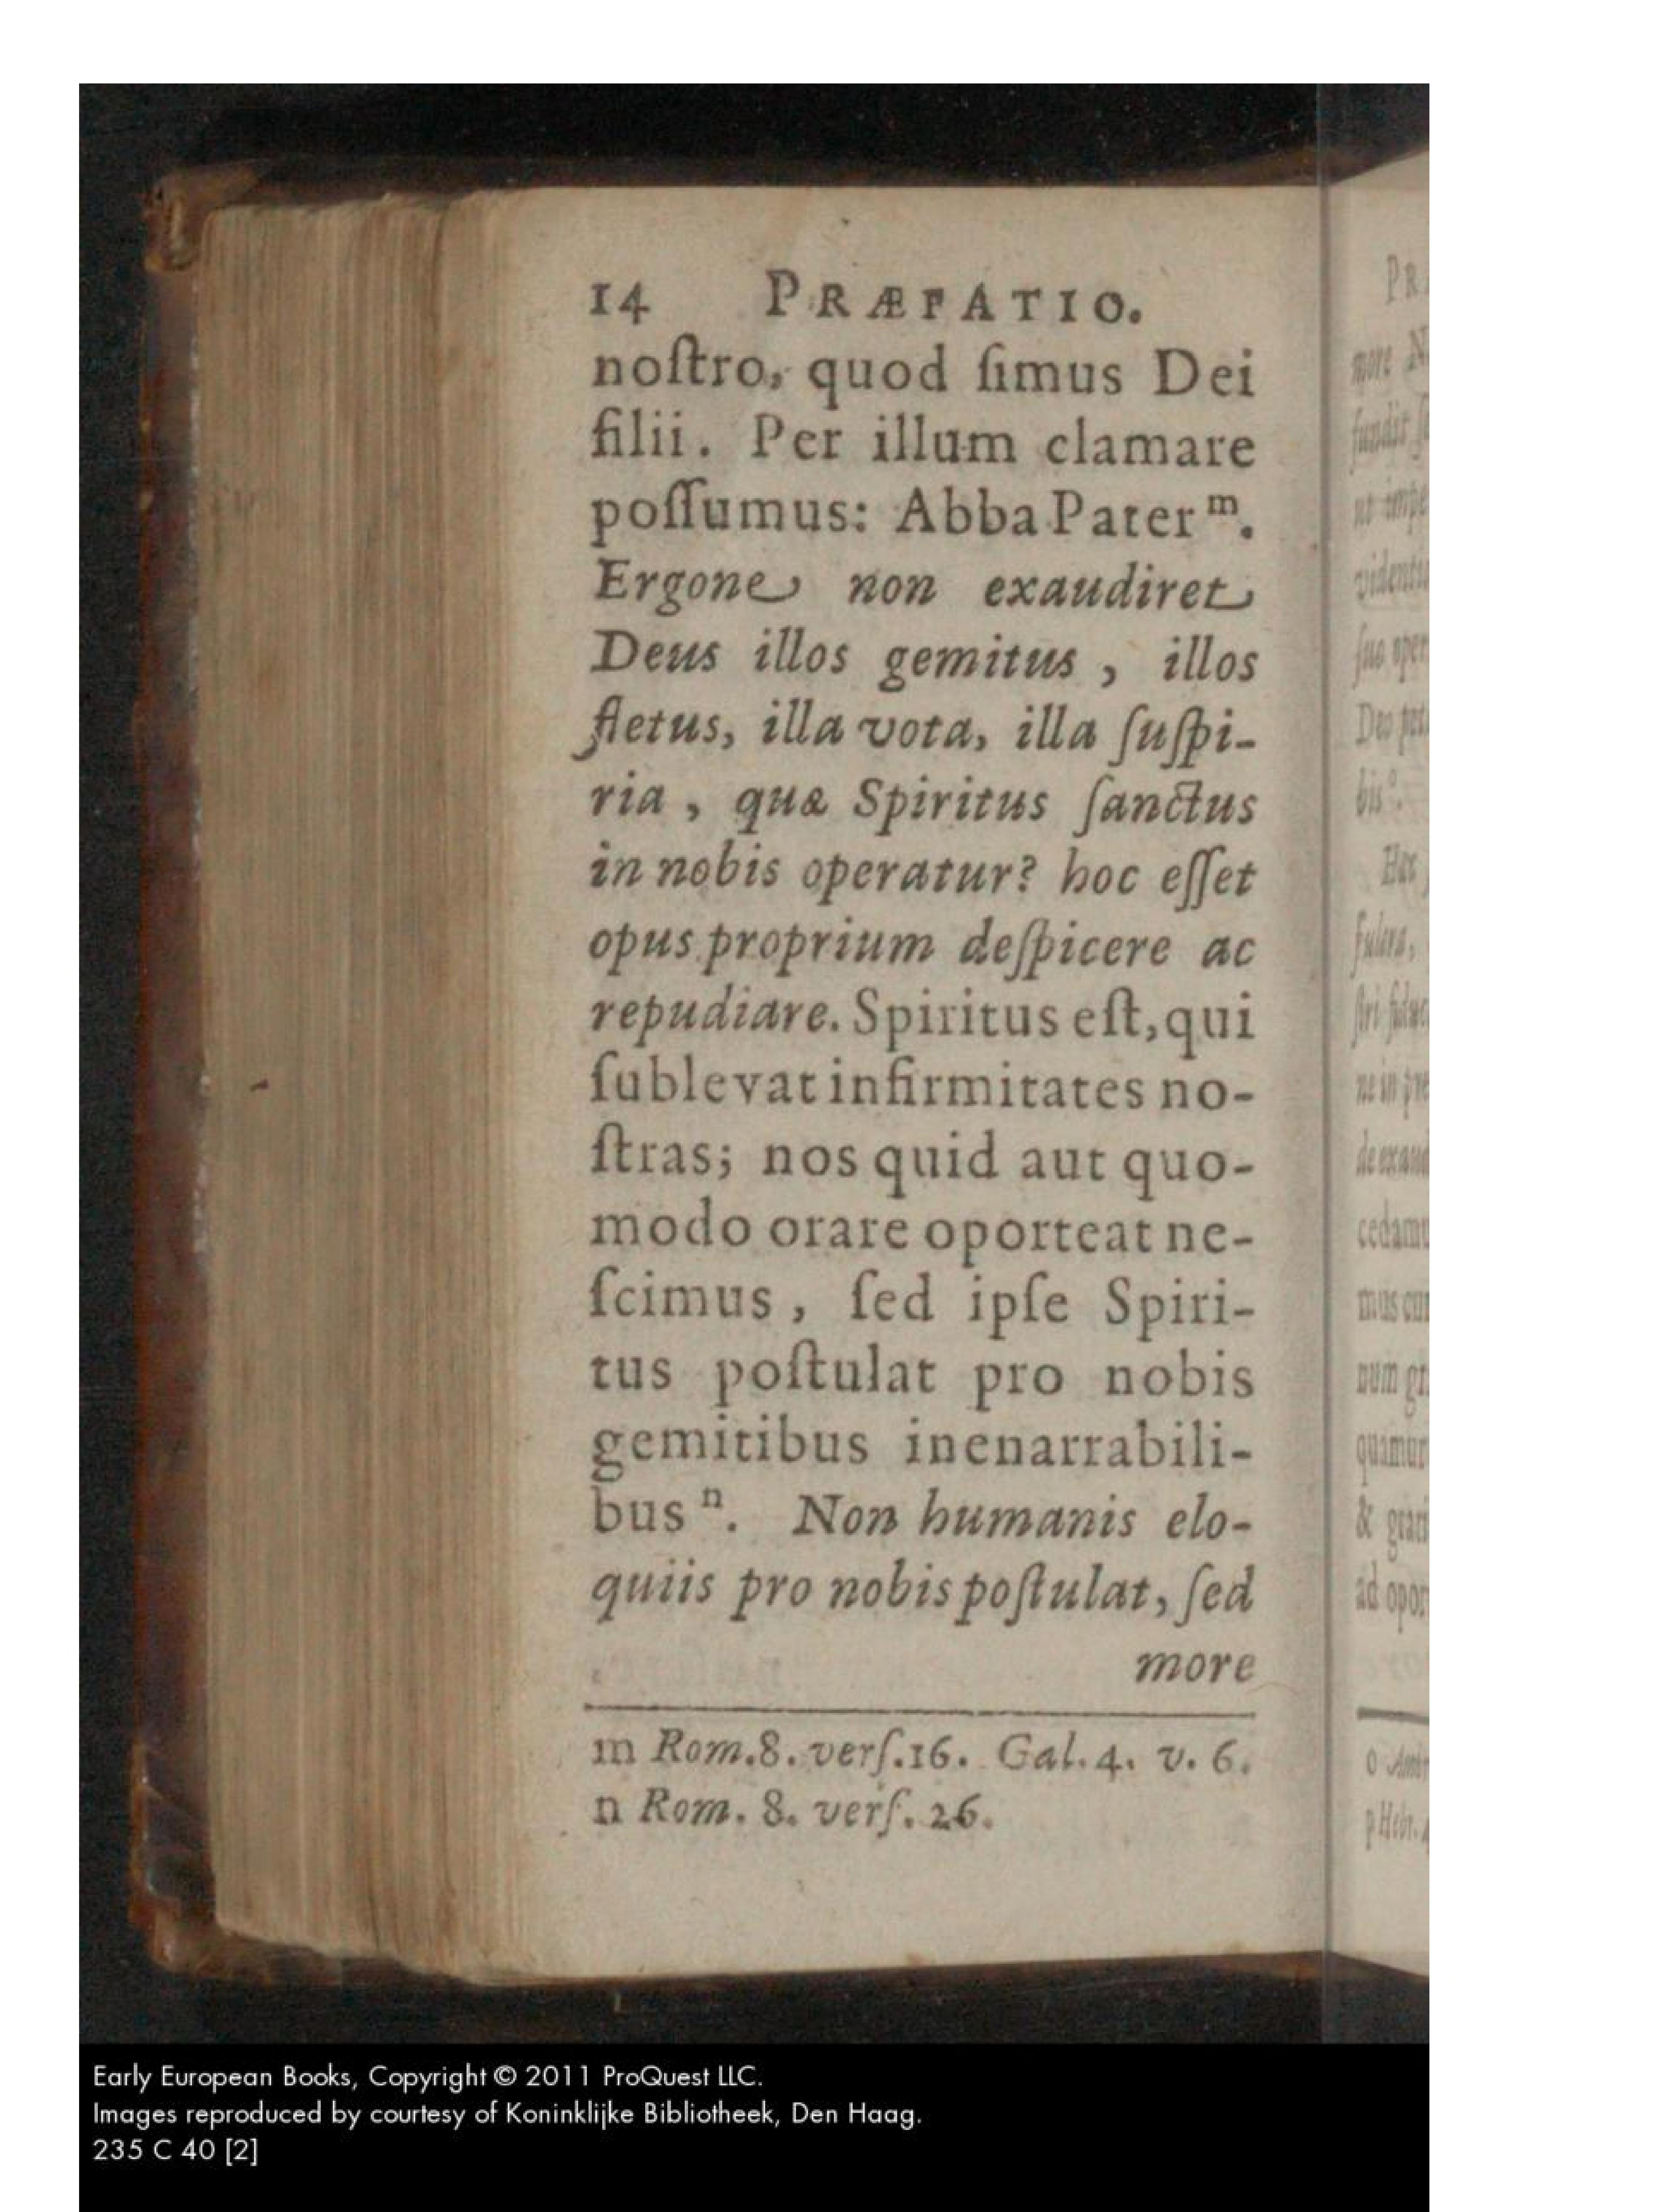 14 PRÆFATIO.
noſtro, quod ſimus Dei
filii. Per illum clamare
poſſumus: Abba Pater ᵐ.
Ergone non exaudiret
Deus illos gemitus, illos
fletus, illa vota, illa ſuſpi-
ria, quæ Spiritus ſanctus
in nobis operatur? hoc eſſet
opus proprium deſpicere ac
repudiare. Spiritus eſt, qui
ſublevat infirmitates no-
ſtras; nos quid aut quo-
modo orare oporteat ne-
ſcimus, ſed ipſe Spiri-
tus poſtulat pro nobis
gemitibus inenarrabili-
bus ⁿ. Non humanis elo-
quiis pro nobis poſtulat, ſed
more
m Rom.8. verſ.16. Gal.4. v. 6.
n Rom. 8. verſ. 26.
Early European Books, Copyright © 2011 ProQuest LLC.
Images reproduced by courtesy of Koninklijke Bibliotheek, Den Haag.
235 C 40 [2]